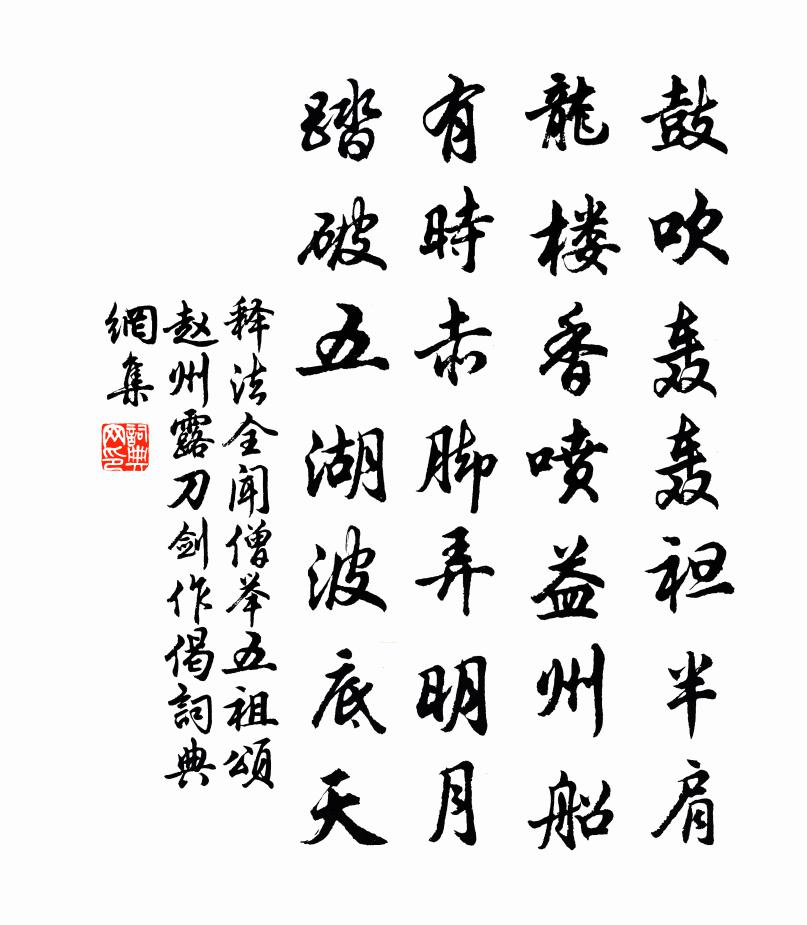 鼓吹轰轰袒半肩
龍楼香喷益州船
有時赤脚弄明月
踏破五湖波底天
释法全闻僧举五祖頌
赵州露刀剑作偈詞典
網集
詞典
网印